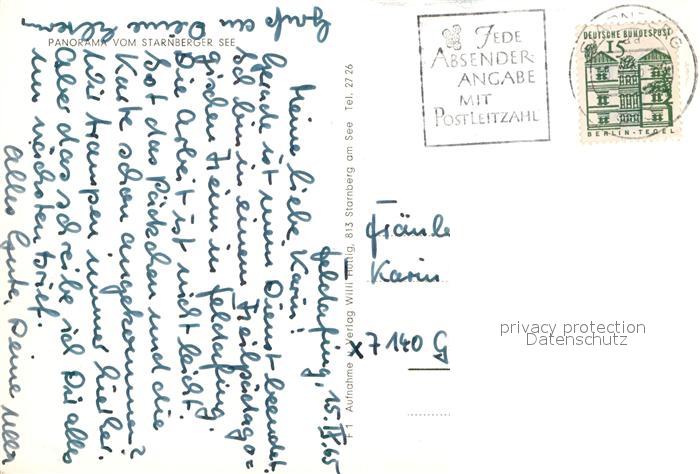 PANORAMA VOM STARNBERGER SEE
Grüße an Deine Eltern
Feldafing, 15.IX.65
Meine liebe Karin!
Gerade ist mein Dienst beendet.
Ich bin in einem Heilpädago=
gischen Heim in Feldafing.
Die Arbeit ist nicht leicht.
Ist das Päckchen und die
Karte schon angekommen?
Wir trampen immer hierher.
Aber das schreibe ich Dir alles
im nächsten Brief.
Alles Gute, Deine
F 1 Aufnahme u. Verlag Willi Hottig, 813 Starnberg am See Tel. 27 26
JEDE
ABSENDER-
ANGABE
MIT
POSTLEITZAHL
DEUTSCHE BUNDESPOST
15
BERLIN-TEGEL
Fräule
Karin
x7140 G
privacy protection
Datenschutz